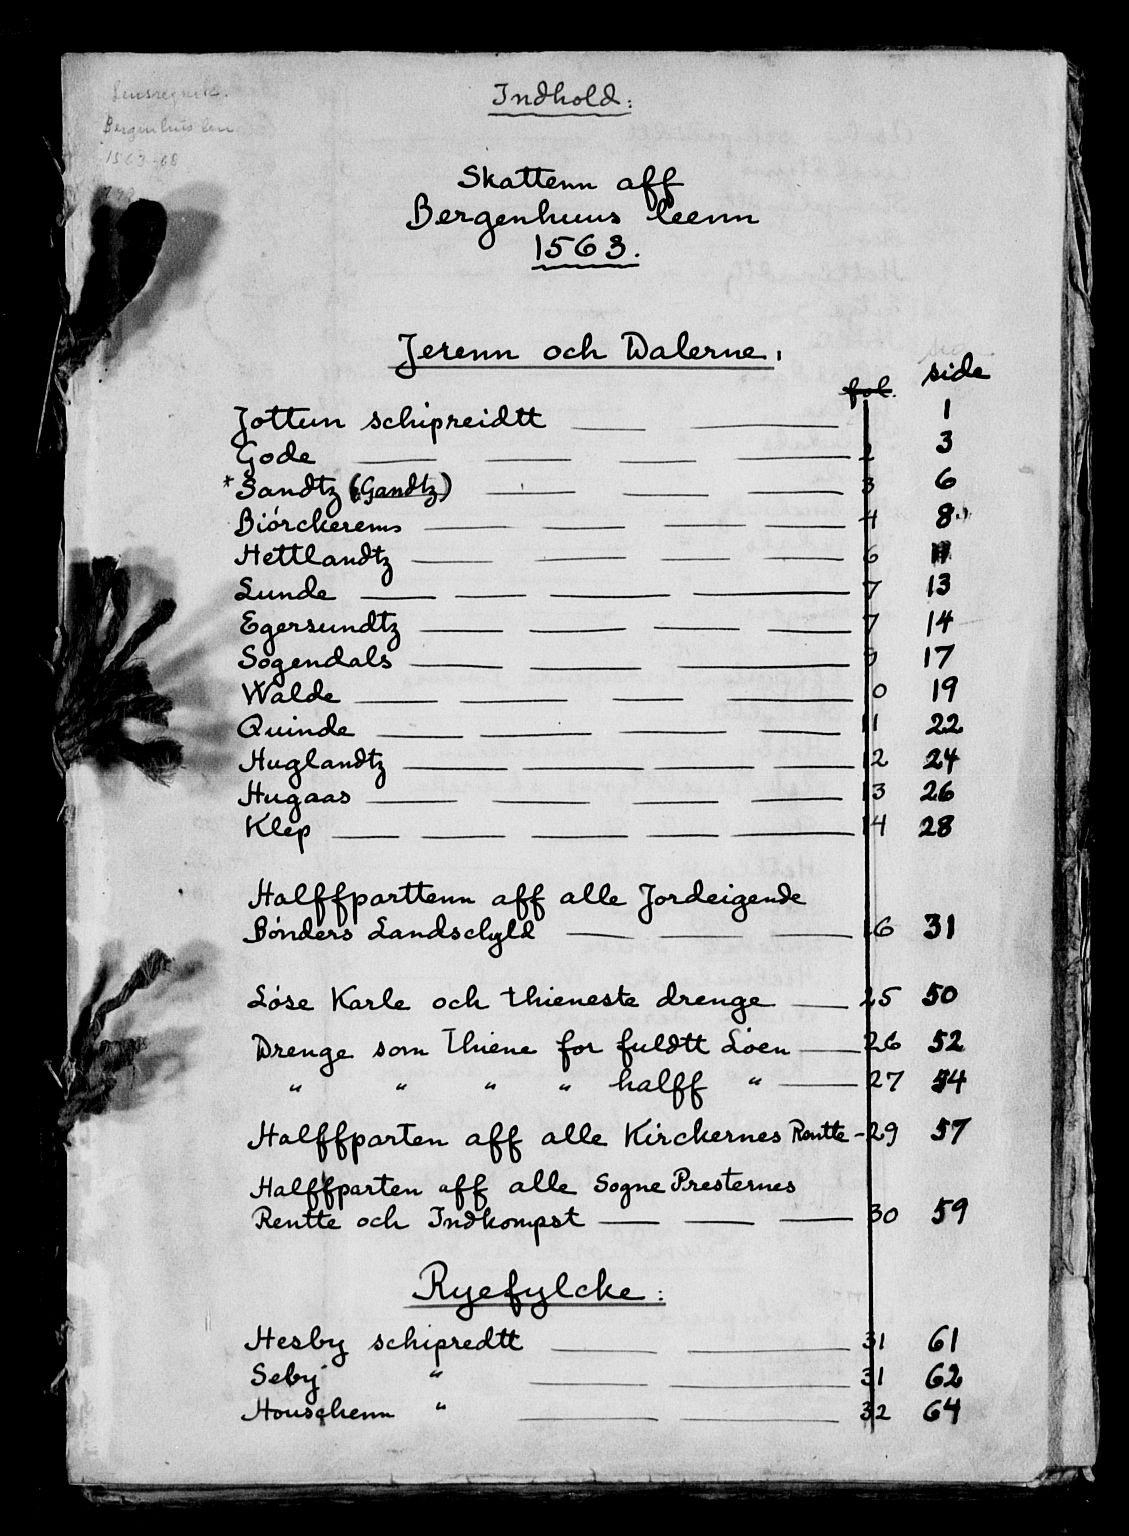 Lensregnsk.
Bergenhus len
1563-68
Indhold:
Skattenn aff
Bergenhuus leenn
1563.
Jerenn och Dalerne:
fol. side
Jottun schipreidtt 1
Gode 2 3
*Sandtz (Gandtz) 3 6
Biórckerems 4 8
Hettlandtz 6 11
Lunde 7 13
Egersundtz 7 14
Sogendals 9 17
Walde 10 19
Quinde 11 22
Huglandtz 12 24
Hugaas 13 26
Klep 14 28
Halffparttenn aff alle Jordeigende
Bónders Landschyld 16 31
Lóse Karle och thieneste drenge 25 50
Drenge som thiene for fuldtt Lóen 26 52
" " " " halff " 27 54
Halffparten aff alle Kirckernes Rentte - 29 57
Halffparten aff alle Sogne Presternes
Rentte och Indkompst 30 59
Ryefylcke:
Hesby schipredtt 31 61
Seby " 31 62
Houschenn " 32 64